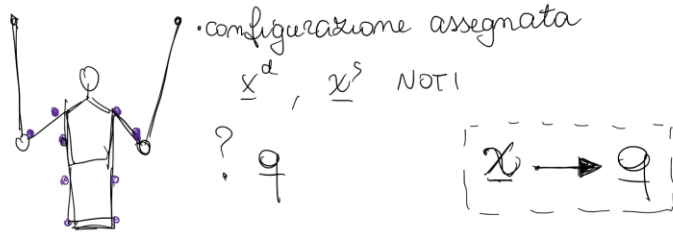 • configurazione assegnata
x^d , x^s NOTI
? q
x → q